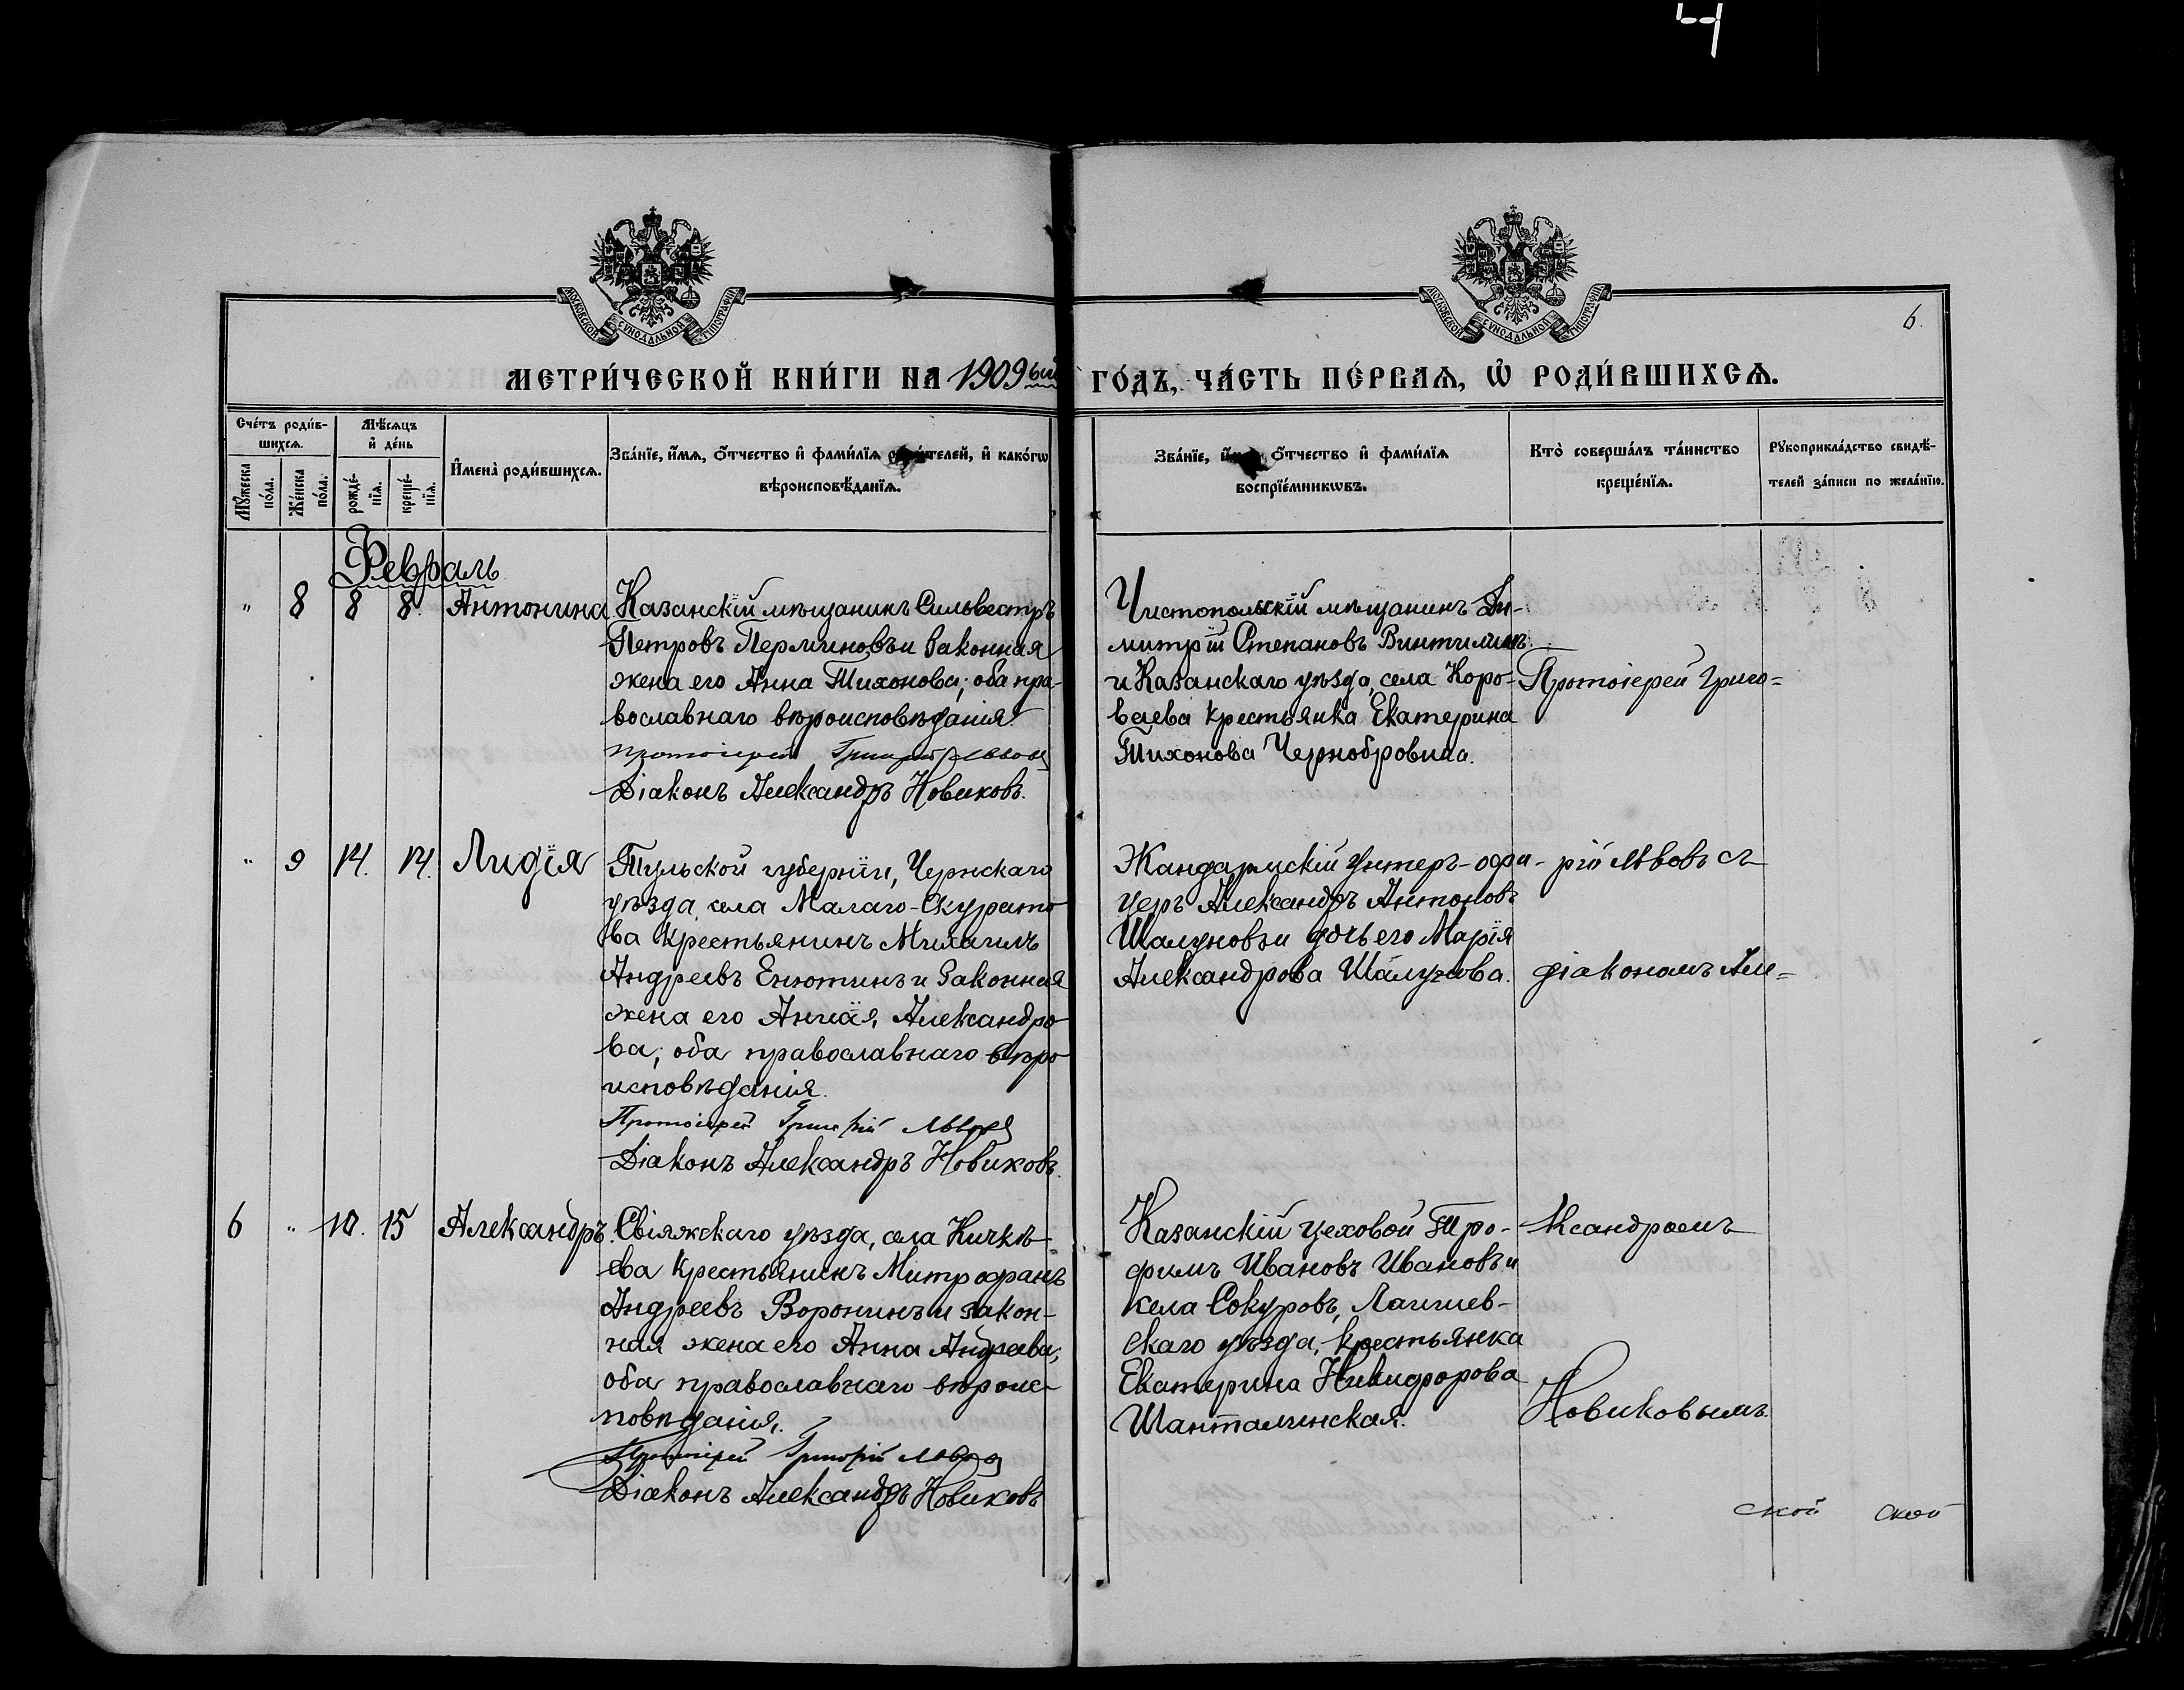 4
МОСКОВСКОЙ СУНОДАЛЬНОЙ ТИПОГРАФІИ
МОСКОВСКОЙ СУНОДАЛЬНОЙ ТИПОГРАФІИ
6.
МЕТРИ́ЧЕСКОЙ КНИ́ГИ НА 1909ый ГО́ДЪ, ЧА́СТЬ ПЕ́РВАѦ, Ѡ҆ РОДИ́ВШИХСѦ.
Сче́тъ роди́в-
шихсѧ.
Мꙋ́жеска по́ла.
Же́нска по́ла.
Мѣ́сѧцъ
и҆ де́нь
рожде́-
нїѧ.
креще́-
нїѧ.
И҆мена̀ роди́вшихсѧ.
Зва́нїе, и҆́мѧ, ѻ҆́тчество и҆ фами́лїѧ роди́телей, и҆ како́гѡ
вѣроисповѣ́данїѧ.
Зва́нїе, и҆́мѧ, ѻ҆́тчество и҆ фами́лїѧ
воспрїе́мникѡвъ.
Кто̀ соверша́лъ та́инство
креще́нїѧ.
Рꙋкоприкла́дство свидѣ́-
телей за́писи по жела́нїю.
Февраль
" 8 8 8. Антонина
Казанскій мѣщанинъ Сильвестръ
Петровъ Перминовъ и законная
жена его Анна Тихонова; оба пра-
вославнаго вѣроисповѣданія.
Протоіерей Григорій Львовъ
Діаконъ Александръ Новиковъ.
Чистопольскій мѣщанинъ Ди-
митрій Степановъ
и Казанскаго уѣзда, села Коро-
ваева крестьянка Екатерина
Тихонова Чернобровина.
Протоіерей Григо=
" 9 14. 14. Лидія
Тульской губерніи, Чернскаго
уѣзда, села Малаго-Скурато
ва крестьянинъ Михаилъ
Андреевъ Енютинъ и законная
жена его Александро
ва; оба православнаго вѣро
исповѣданія.
Протоіерей Григорій Львовъ
Діаконъ Александръ Новиковъ.
Жандармскій унтеръ-офи-
церъ Александръ Антоновъ
Шалуновъ и дочь его Марія
Александрова Шалунова.
рій Львовъ съ
діакономъ Але=
6 " 10. 15 Александръ.
Свіяжскаго уѣзда, села Кичкѣ-
ева крестьянинъ Митрофанъ
Андреевъ Воронинъ и закон-
ная жена его Анна Андреева;
оба православнаго вѣроис-
повѣданія.
Протоіерей Григорій Львовъ
Діаконъ Александръ Новиковъ
Казанскій цеховой Тро-
фимъ Ивановъ Ивановъ и
села Сокуровъ, Лаишев-
скаго уѣзда, крестьянка
Екатерина Никифорова
Шанталинская.
ксандромъ
Новиковымъ.
ской ской